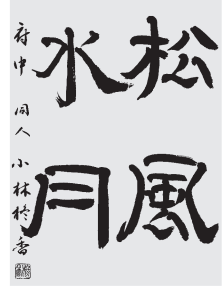 松風
水月
府中 同人 小林柊香